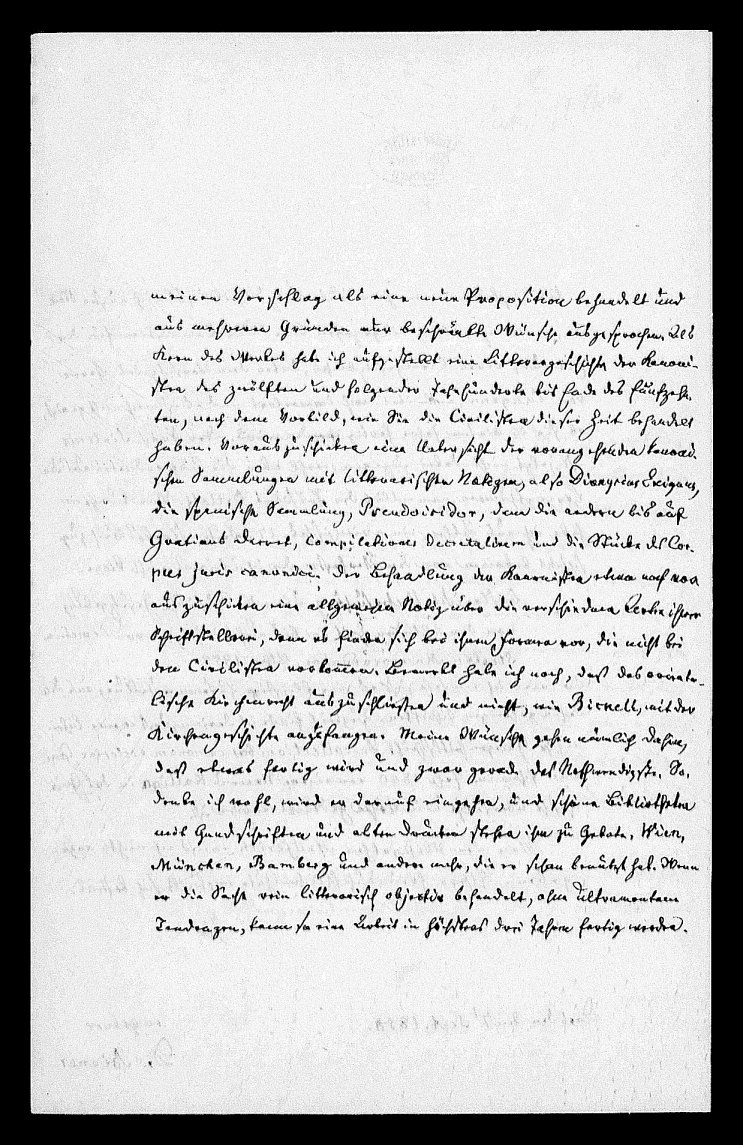 meinen Vorschlag als eine neue Proposition behandelt und
aus mehreren Gründen nur beschränkte Wünsche ausgesprochen. Als
Kern des Werkes habe ich aufgestellt eine Litterargeschichte der Kanoni-
sten des zwölften und folgender Jahrhunderte bis Ende des funfzehn-
ten, nach dem Vorbild, wie Sie die Civilisten dieser Zeit behandelt
haben. Vorauszuschicken eine Uebersicht der vorangehenden kanoni-
schen Sammlungen mit litterarischen Notizen, also Dionysius Exiguus,
die spanische Sammlung, Pseudoisidor, dann die andern bis auf
Gratians Decret, Compilationes Decretalium und die Stücke des Cor-
pus juris canonici. Der Behandlung der Kanonisten etwa noch vor
auszuschicken eine allgemeine Notiz über die verschiednen Arten ihrer
Schriftstellerei, denn es finden sich bei ihnen Formen vor, die nicht bei
den Civilisten vorkommen. Bemerkt habe ich noch, daß das orienta-
lische Kirchenrecht auszuschließen und nicht, wie Bickell, mit der
Kirchengeschichte anzufangen. Meine Wünsche gehen nämlich dahin,
daß etwas fertig wird und zwar gerade das Nothwendigste. So,
denke ich wohl, wird er darauf eingehen, und schöne Bibliotheken
mit Handschriften und alten Drucken stehen ihm zu Gebote, Wien,
München, Bamberg und andere mehr, die er schon benützt hat. Wenn
er die Sache rein litterarisch objectiv behandelt, ohne ultramontane
Tendenzen, kann so eine Arbeit in höchstens drei Jahren fertig werden.